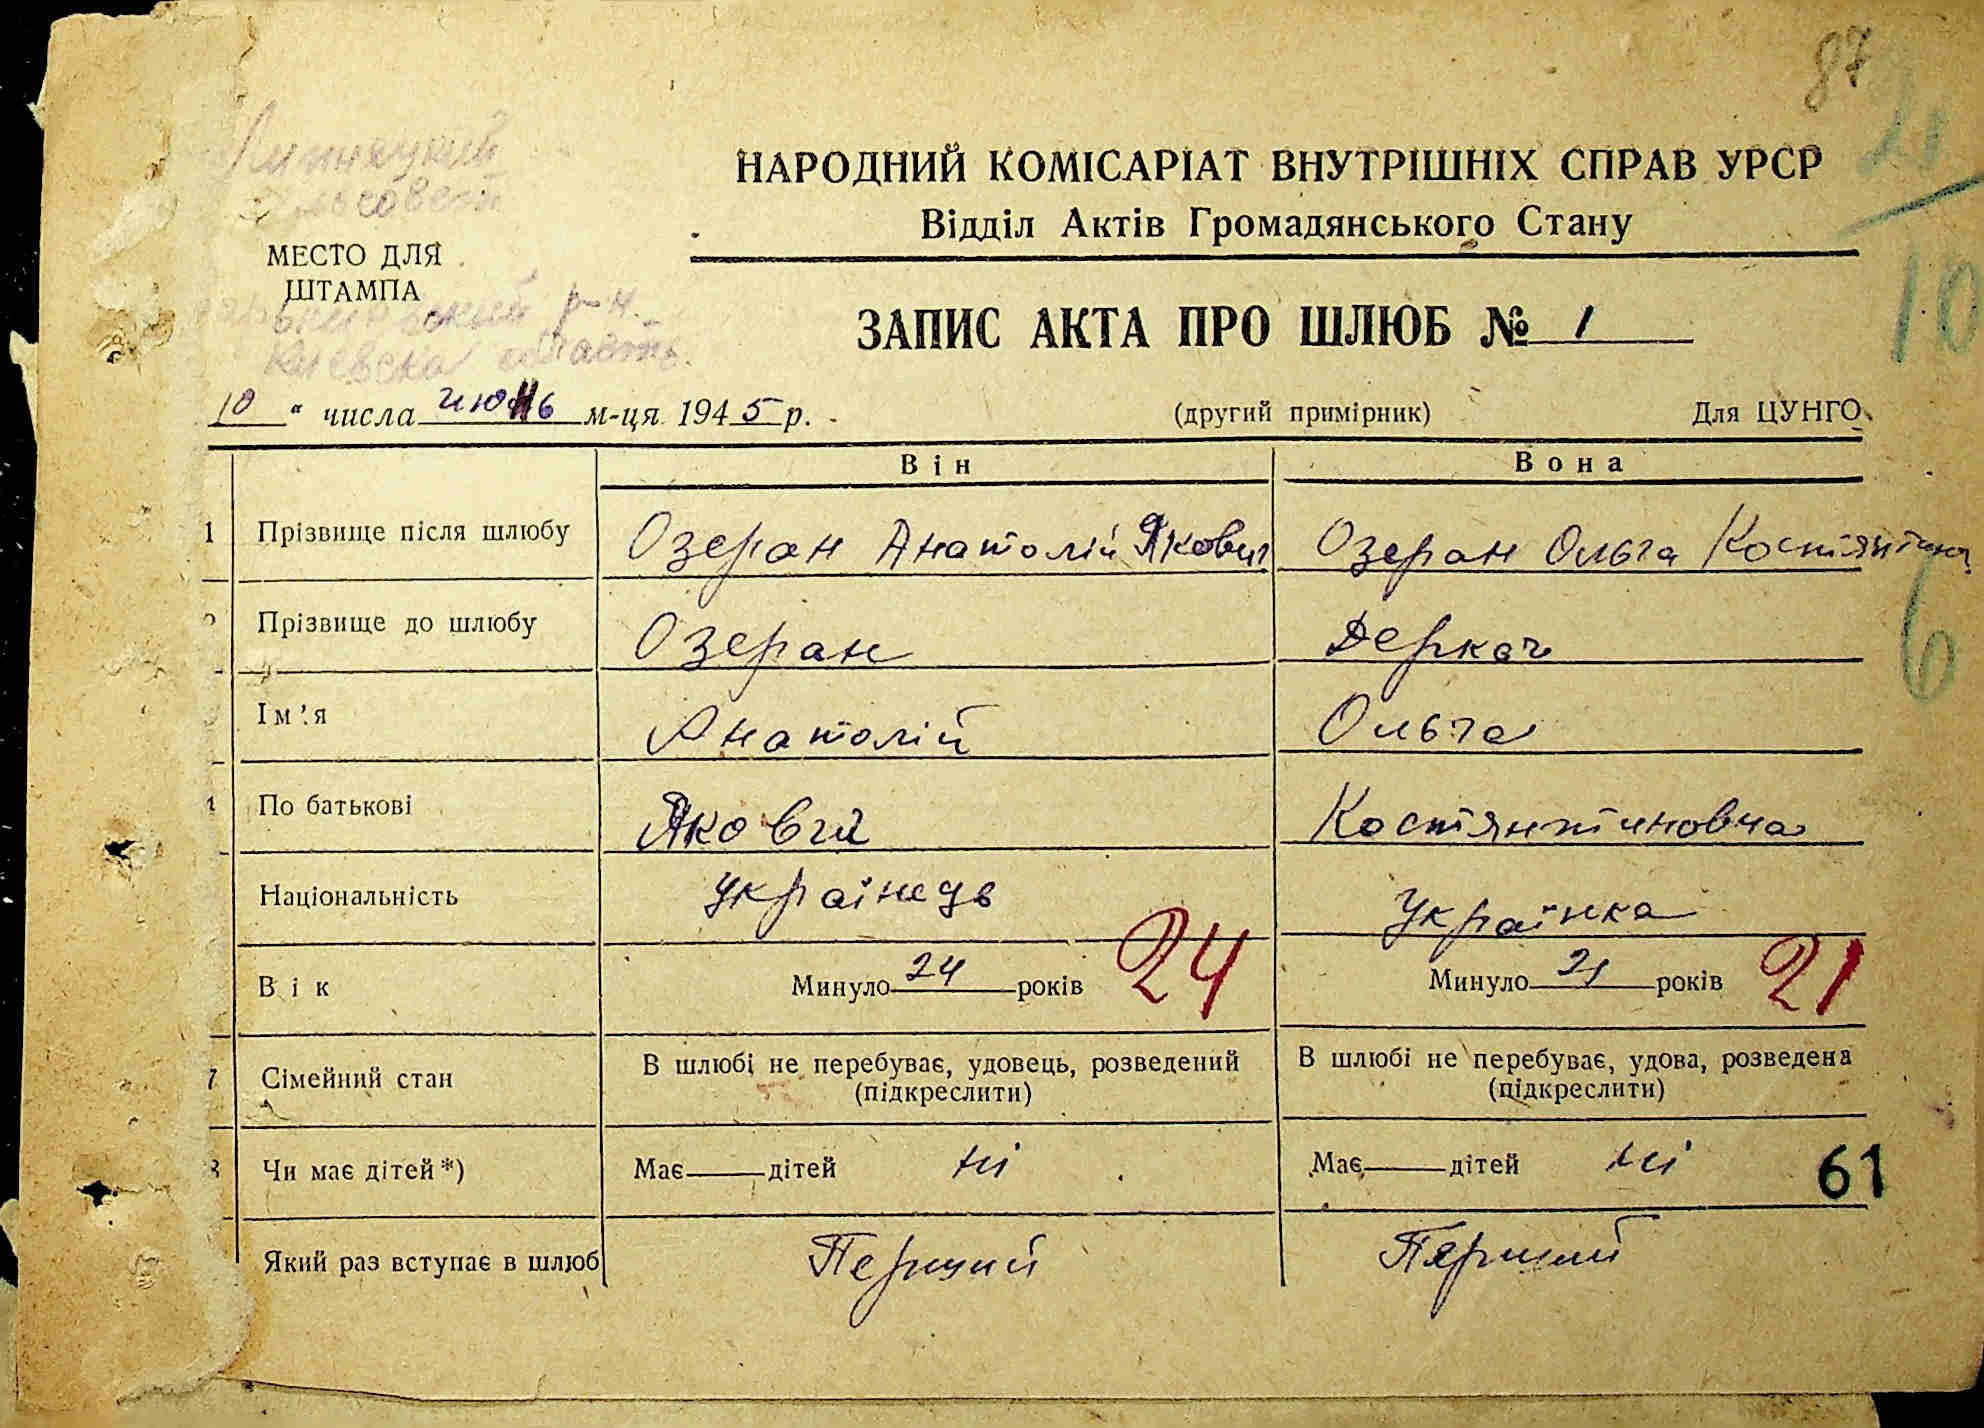 87
21
НАРОДНИЙ КОМІСАРІАТ ВНУТРІШНІХ СПРАВ УРСР
Відділ Актів Громадянського Стану
МЕСТО ДЛЯ
ШТАМПА
р-н.
Киевска область.
10
ЗАПИС АКТА ПРО ШЛЮБ № 1
10 " числа июнь м-ця 1945 р.
(другий примірник)
Для ЦУНГО
Він
Вона
1 Прізвище після шлюбу Озеран Анатолій Якович Озеран Ольга
6
Прізвище до шлюбу Озеран Деркач
Ім'я Анатолій Ольга
4 По батькові Костянтиновна
Національність українець Українка
Вік Минуло 24 років 24 Минуло 21 років 21
7 Сімейний стан В шлюбі не перебуває, удовець, розведений (підкреслити) В шлюбі не перебуває, удова, розведена (підкреслити)
Чи має дітей*) Має дітей ні Має дітей ні
61
Який раз вступає в шлюб Перший Перший